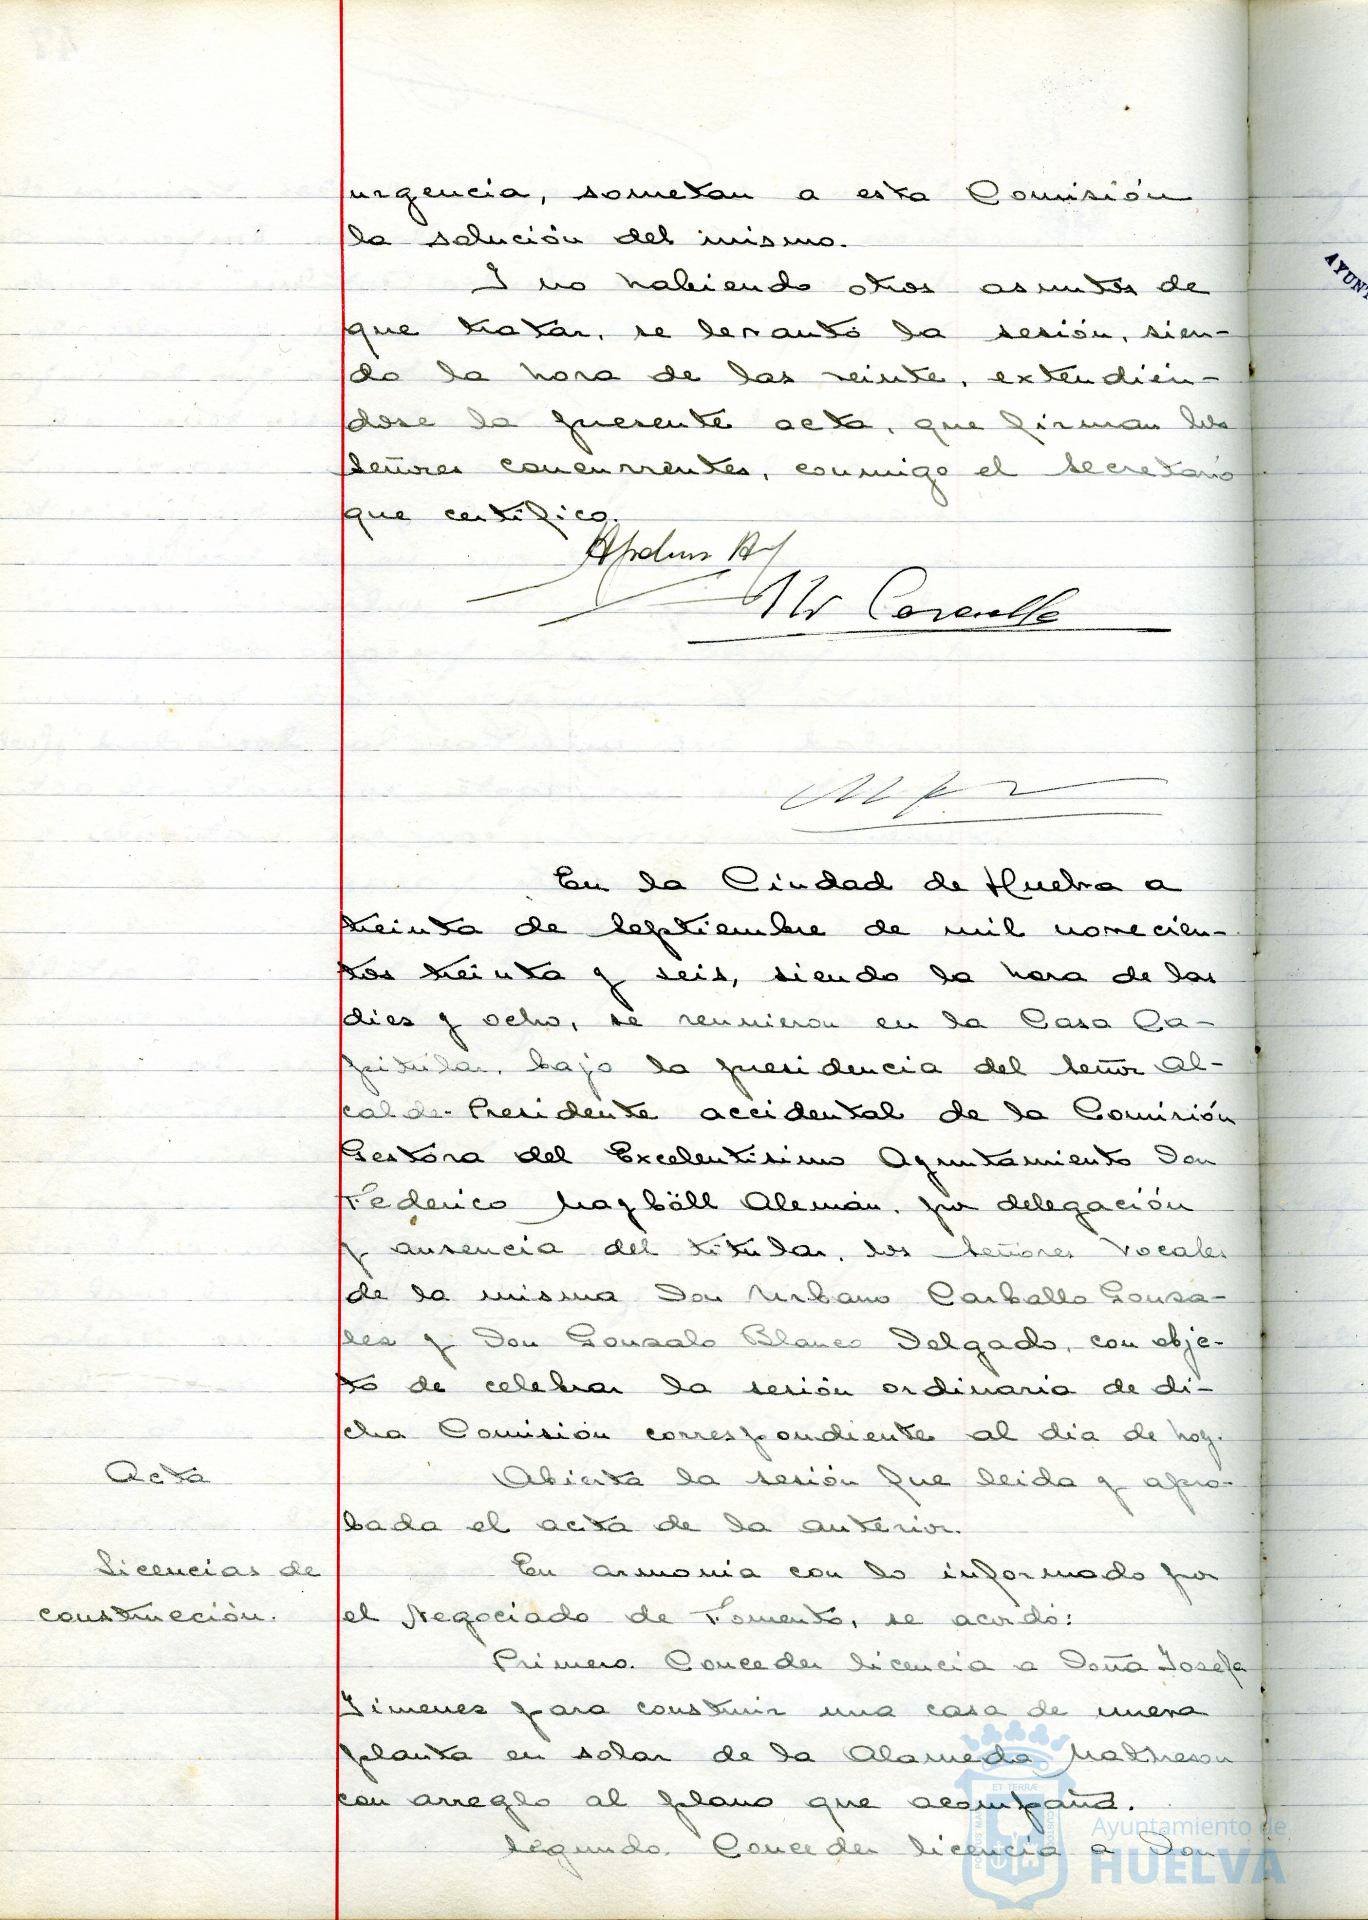 urgencia, sometan a esta Comisión
la solución del mismo.
Y no habiendo otros asuntos de
que tratar, se levantó la sesión, sien-
do la hora de las veinte, extendien-
dose la presente acta, que firman los
Señores concurrentes, conmigo el Secretario
que certifico.
En la Ciudad de Huelva a
treinta de Septiembre de mil novecien-
tos treinta y seis, siendo la hora de las
dies y ocho, se reunieron en la Casa Ca-
pitular, bajo la presidencia del Señor Al-
calde-Presidente accidental de la Comisión
Gestora del Excelentisimo Ayuntamiento Don
Federico Mayböll Alemán, por delegación
y ausencia del titular, los Señores Vocales
de la misma Don Urbano Carballo Gonsa-
les y Don Gonsalo Blanco Delgado, con obje-
to de celebrar la sesión ordinaria de di-
cha Comisión correspondiente al dia de hoy.
Acta
Abierta la sesión fue leida y apro-
bada el acta de la anterior.
Licencias de
construcción.
En armonia con lo informado por
el Negociado de Fomento, se acordó:
Primero. Conceder licencia a Doña Josefa
Jimenes para construir una casa de nueva
planta en solar de la Alameda Matheson
con arreglo al plano que acompaña.
Segundo. Conceder licencia a Don
AYUNT
Ayuntamiento de
HUELVA